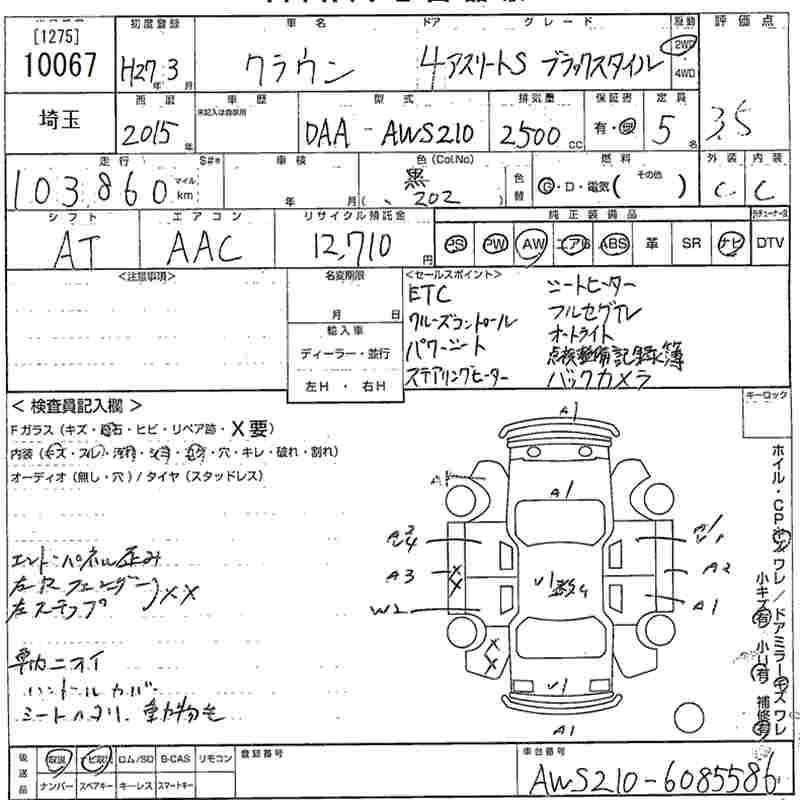 [1275]
10067
初度登録
H27年 3月
車名
クラウン
ドア
4
グレード
アスリートS ブラックスタイル
駆動
2WD
4WD
評価点
3.5
埼玉
西暦
2015年
車歴
未記入は自家用
型式
DAA-AWS210
排気量
2500cc
保証書
有・無
定員
5名
走行
103,860
マイル
km
S#*
車検
年 月
色(Col.No)
黒
( 202 )
色替
燃料
G・D・電気( その他 )
外装
C
内装
C
シフト
AT
エアコン
AAC
リサイクル預託金
12,710円
純正装備品
PS PW AW エアB ABS 革 SR ナビ
DTV
<注意事項>
名変期限
月 日
輸入車
ディーラー・並行
左H ・ 右H
<セールスポイント>
ETC
シートヒーター
クルーズコントロール
フルセグTV
パワーシート
オートライト
点検整備記録簿
ステアリングヒーター
バックカメラ
キーロック
< 検査員記入欄 >
Fガラス(キズ・飛石・ヒビ・リペア跡・X要)
内装(キズ・スレ・汚れ・シミ・コゲ・穴・キレ・破れ・割れ)
オーディオ(無し・穴)/ タイヤ(スタッドレス)
エンド・パネル歪み
左R フェンダー
左ステップ
XX
車内ニオイ
ハンドルカバー
シートハリ、動物毛
A1
A1
A3
A2
W2
A1
V1
V1
A1
ホイル・CPキズ ワレ / ドアミラーキズ ワレ
小キズ有 小U有 補修有
後送品
取説 ナビ取説 ロム/SD B-CAS リモコン
ナンバー スペアキー キーレス スマートキー
登録番号
車台番号
AWS210-6085586